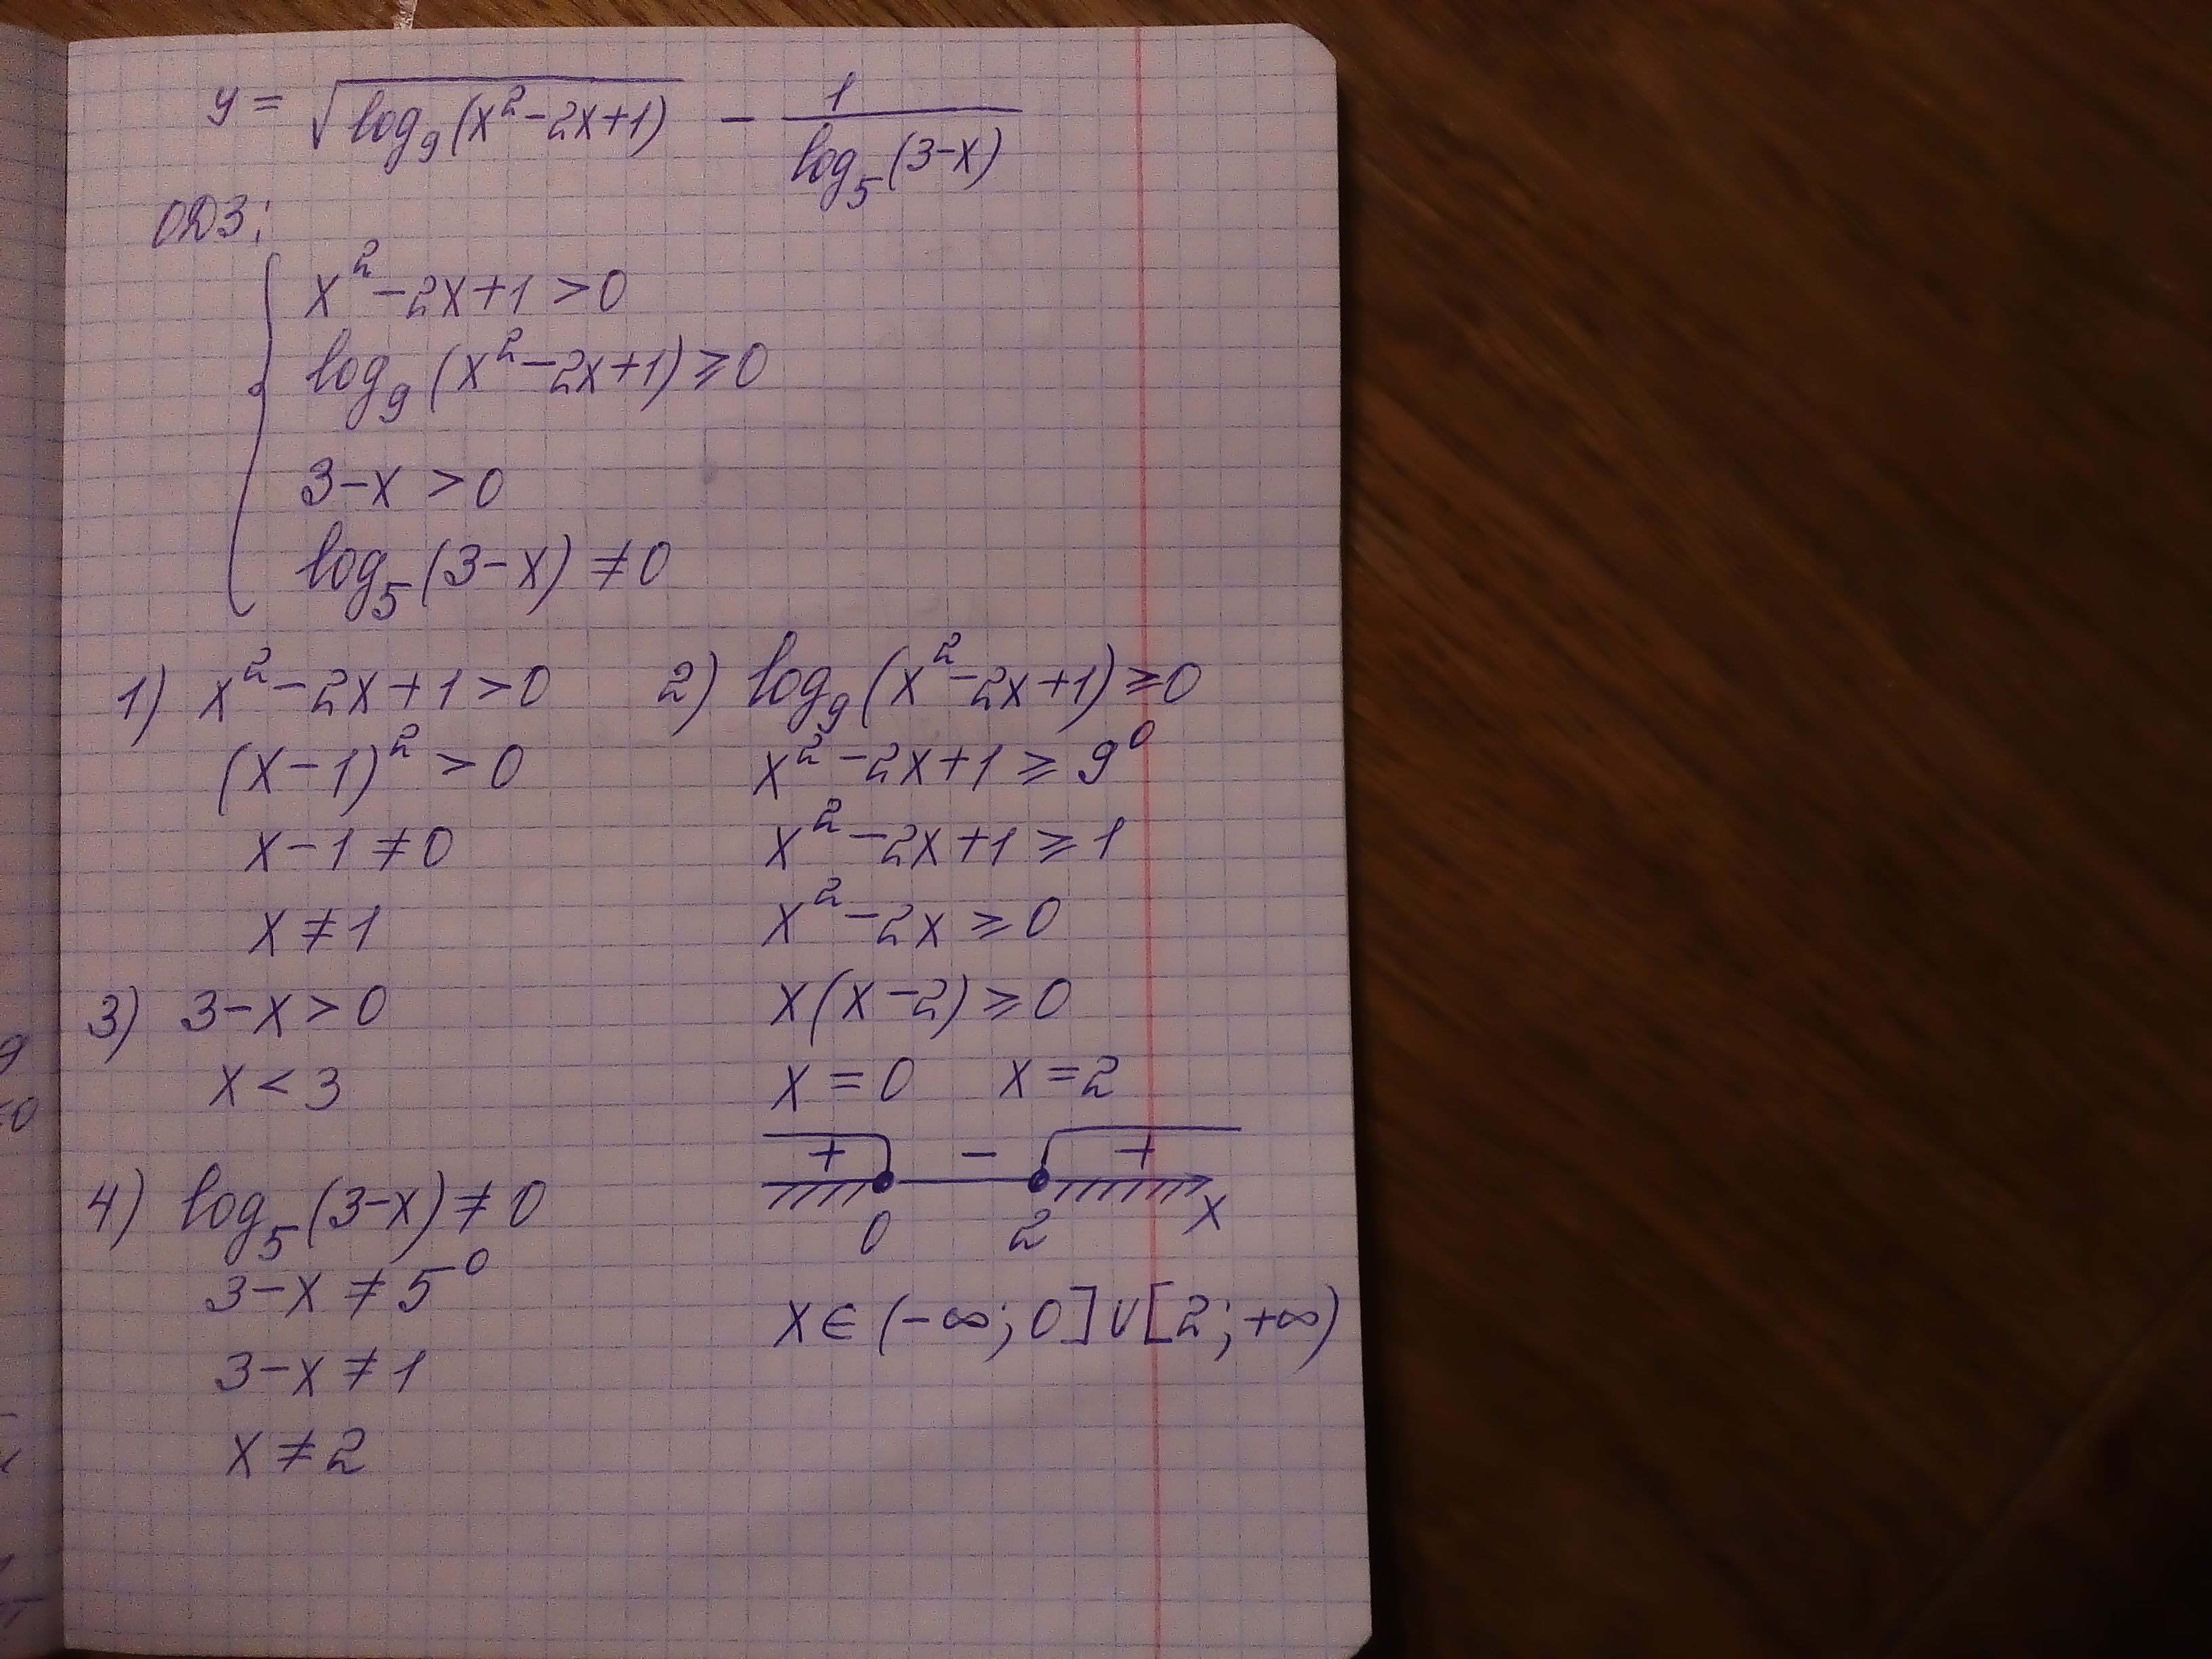 y = √log₉(x²-2x+1) - 1/log₅(3-x)
ОДЗ:
x²-2x+1>0
log₉(x²-2x+1)⩾0
3-x>0
log₅(3-x)≠0
1) x²-2x+1>0
(x-1)²>0
x-1≠0
x≠1
2) log₉(x²-2x+1)⩾0
x²-2x+1⩾9⁰
x²-2x+1⩾1
x²-2x⩾0
x(x-2)⩾0
x=0 x=2
+ - +
0 2 x
x∈(-∞;0]∪[2;+∞)
3) 3-x>0
x<3
4) log₅(3-x)≠0
3-x≠5⁰
3-x≠1
x≠2